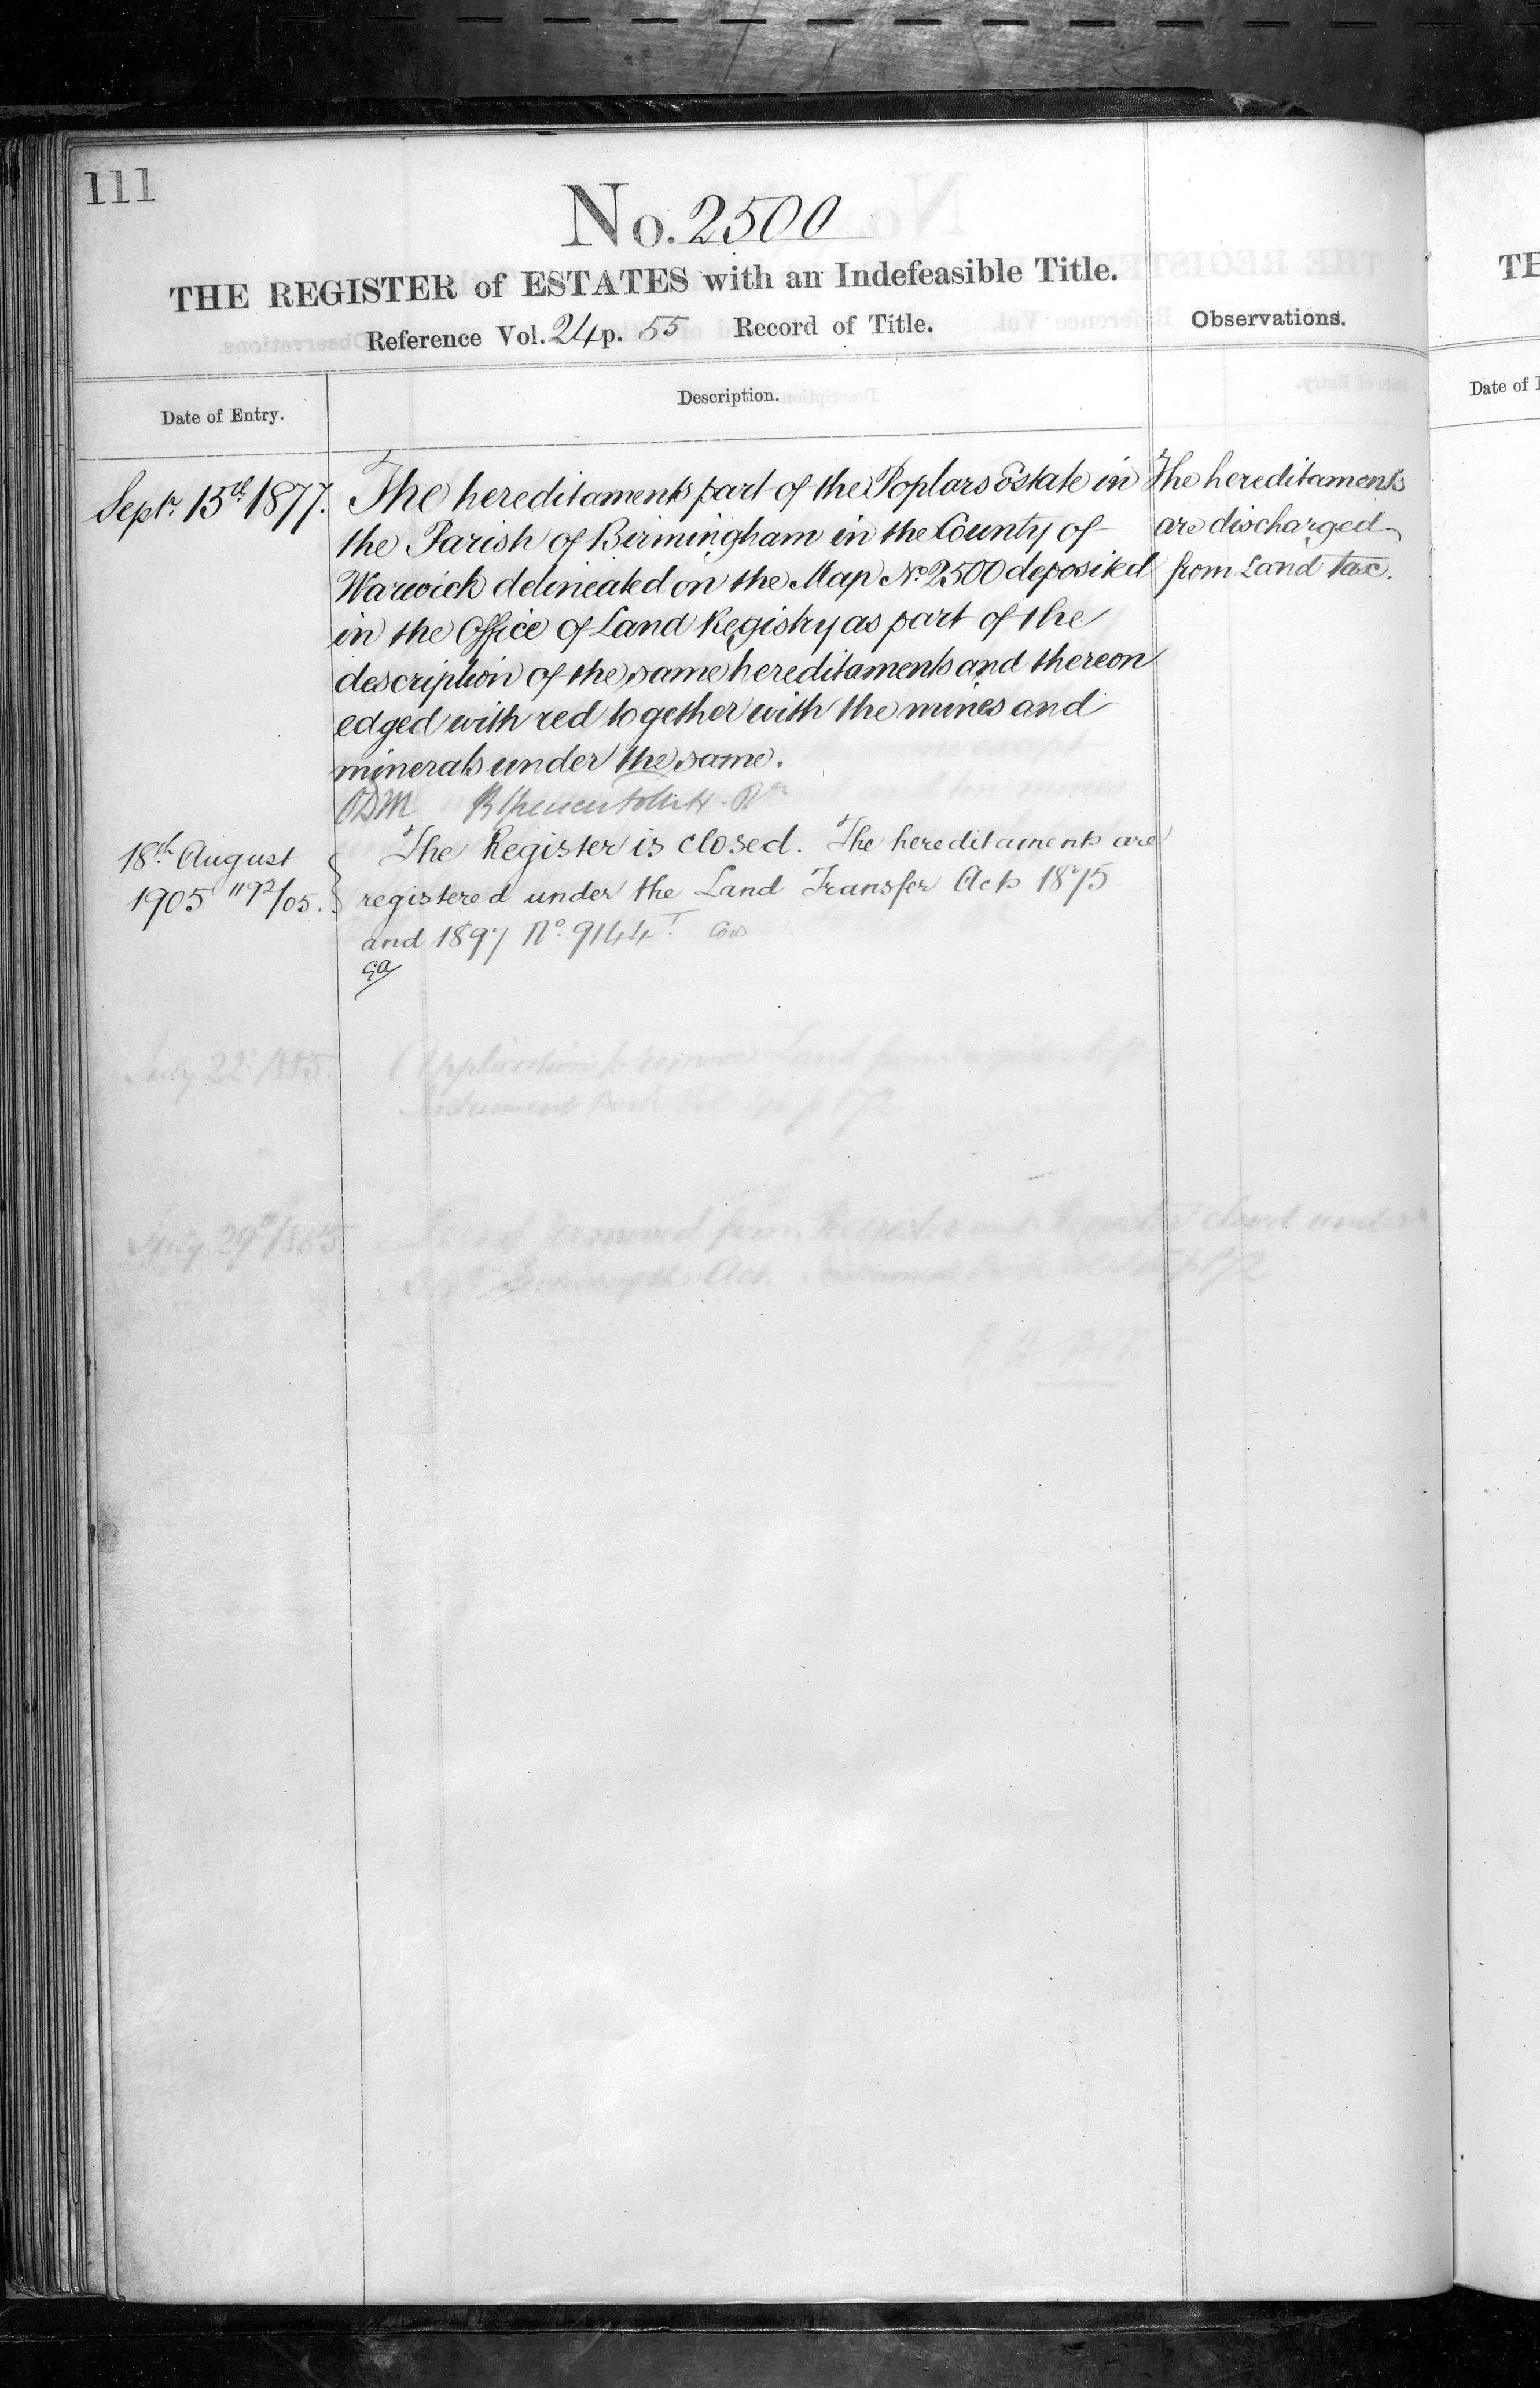 111
No. 2500
THE REGISTER of ESTATES with an Indefeasible Title.
Reference Vol. 24 p. 55 Record of Title.
Observations.
Date of Entry.
Description.
Septr. 15th 1877.
The hereditaments part of the Poplars Estate in
the Parish of Birmingham in the County of
Warwick delineated on the Map No. 2500 deposited
in the Office of Land Registry as part of the
description of the same hereditaments and thereon
edged with red together with the mines and
minerals under the same.
The hereditaments
are discharged
from Land tax.
18th August
1905
The Register is closed. The hereditaments are
registered under the Land Transfer Acts 1875
and 1897 No. 9144
July 22 1885.
Application to remove Land from
Instrument Book Vol p 172
July 29th 1885
removed from Register closed under
Act
TH
Date of